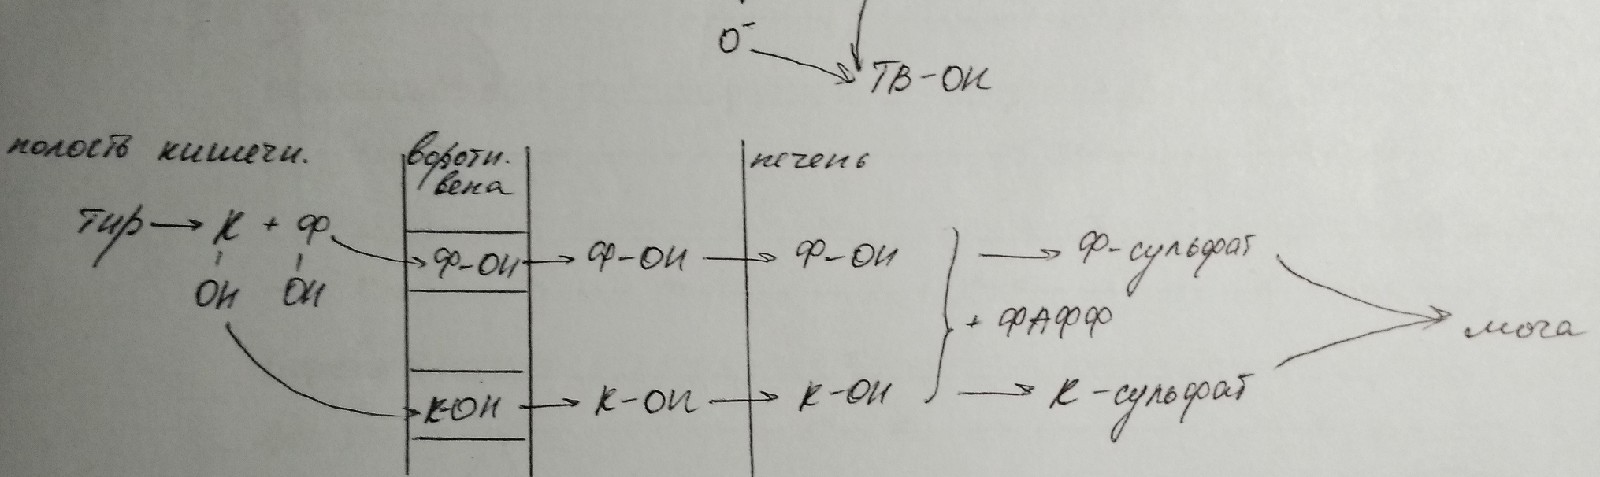 O⁻
ТВ-ОН
полость кишечн.
воротн.
вена
печень
тир → К + Ф
ОН ОН
Ф-ОН → Ф-ОН → Ф-ОН → Ф-сульфат
+ ФАФФ
моча
К-ОН → К-ОН → К-ОН → К-сульфат